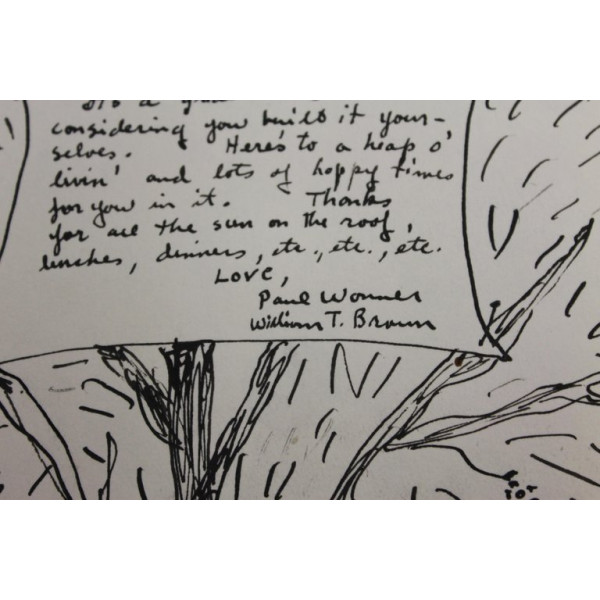 considering you build it your-
selves. Here's to a heap o'
livin' and lots of happy times
for you in it. Thanks
for all the sun on the roof,
lunches, dinners, etc., etc., etc.
LOVE,
Paul Wonner
William T. Brown